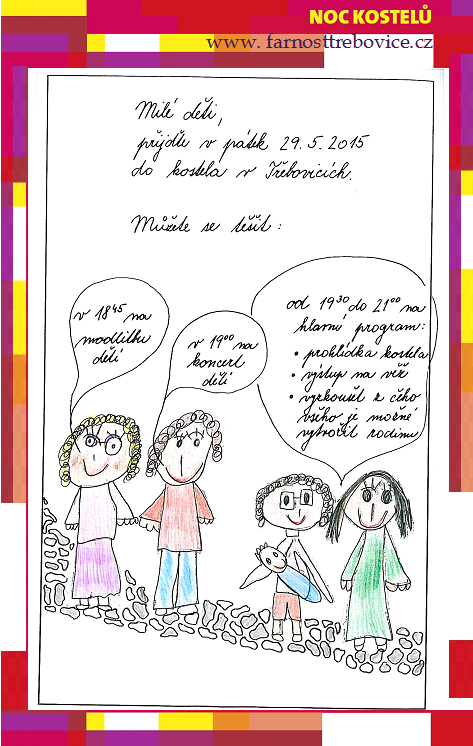 NOC KOSTELŮ
www.farnosttrebovice.cz
Milé děti,
přijďte v pátek 29.5.2015
do kostela v Třebovicích.
Můžete se těšit:
v 18⁴⁵ na
modlitbu
dětí
v 19⁰⁰ na
koncert
dětí
od 19³⁰ do 21⁰⁰ na
hlavní program:
• prohlídka kostela
• výstup na věž
• vyzkoušet z čeho
všeho je možné
vytvořit rodinu